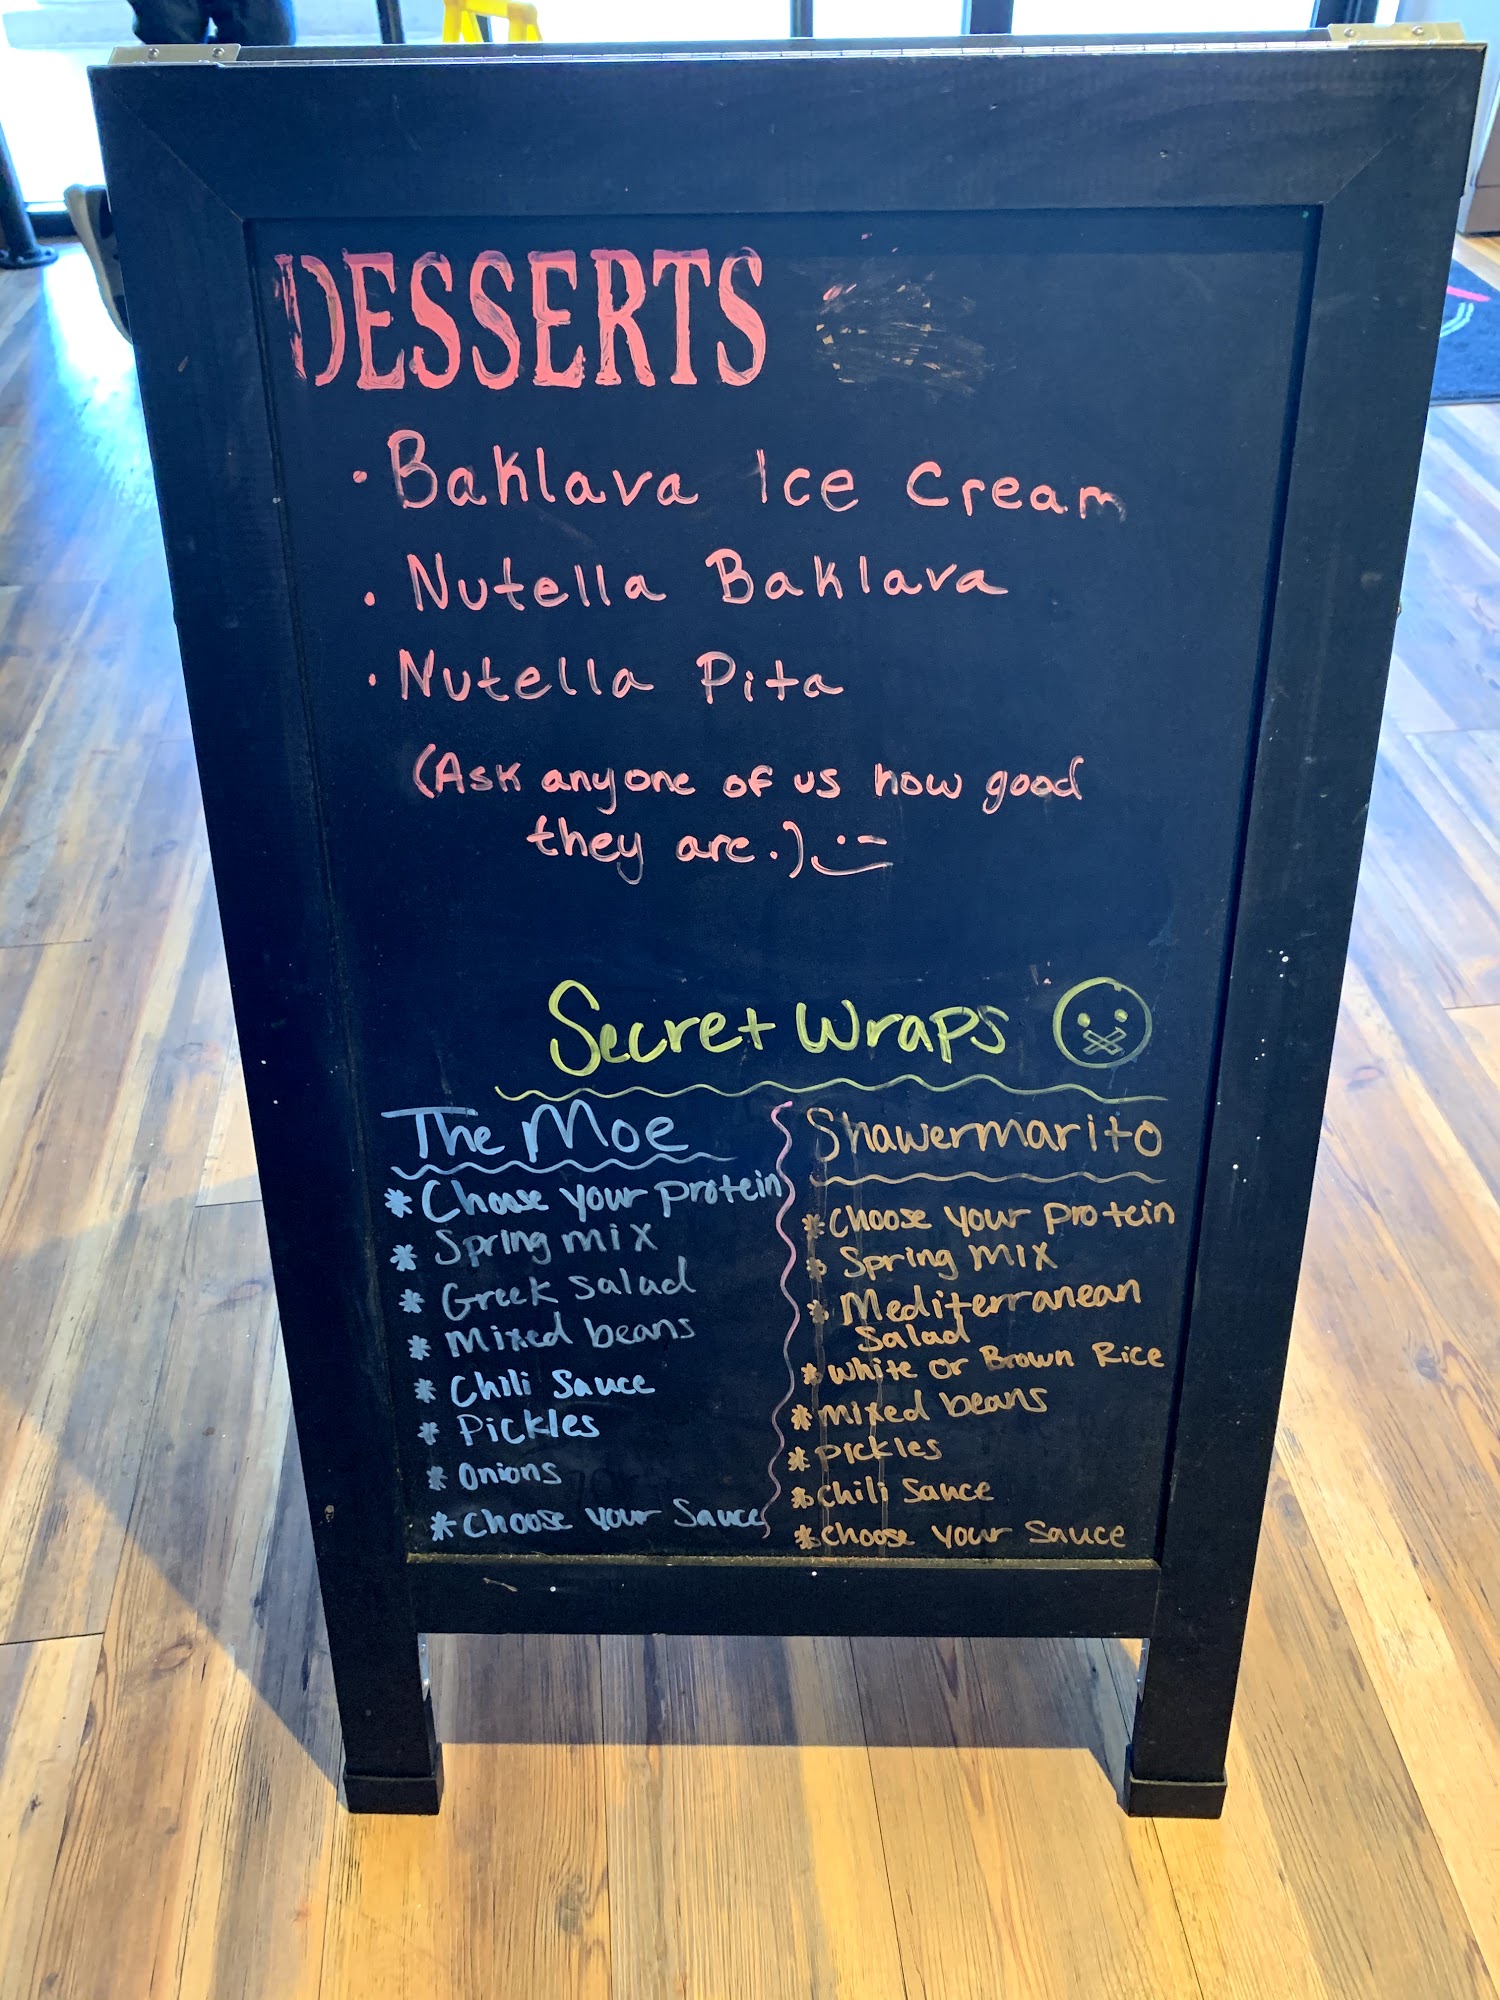 DESSERTS
· Baklava Ice Cream
· Nutella Baklava
· Nutella Pita
(Ask anyone of us how good
they are.)
Secret Wraps
The Moe
* Choose your protein
* Spring mix
* Greek Salad
* Mixed beans
* Chili Sauce
* Pickles
* Onions
* Choose your Sauce
Shawermarito
* Choose your protein
* Spring Mix
* Mediterranean
Salad
* White or Brown Rice
* mixed beans
* Pickles
* Chili Sauce
* Choose your Sauce